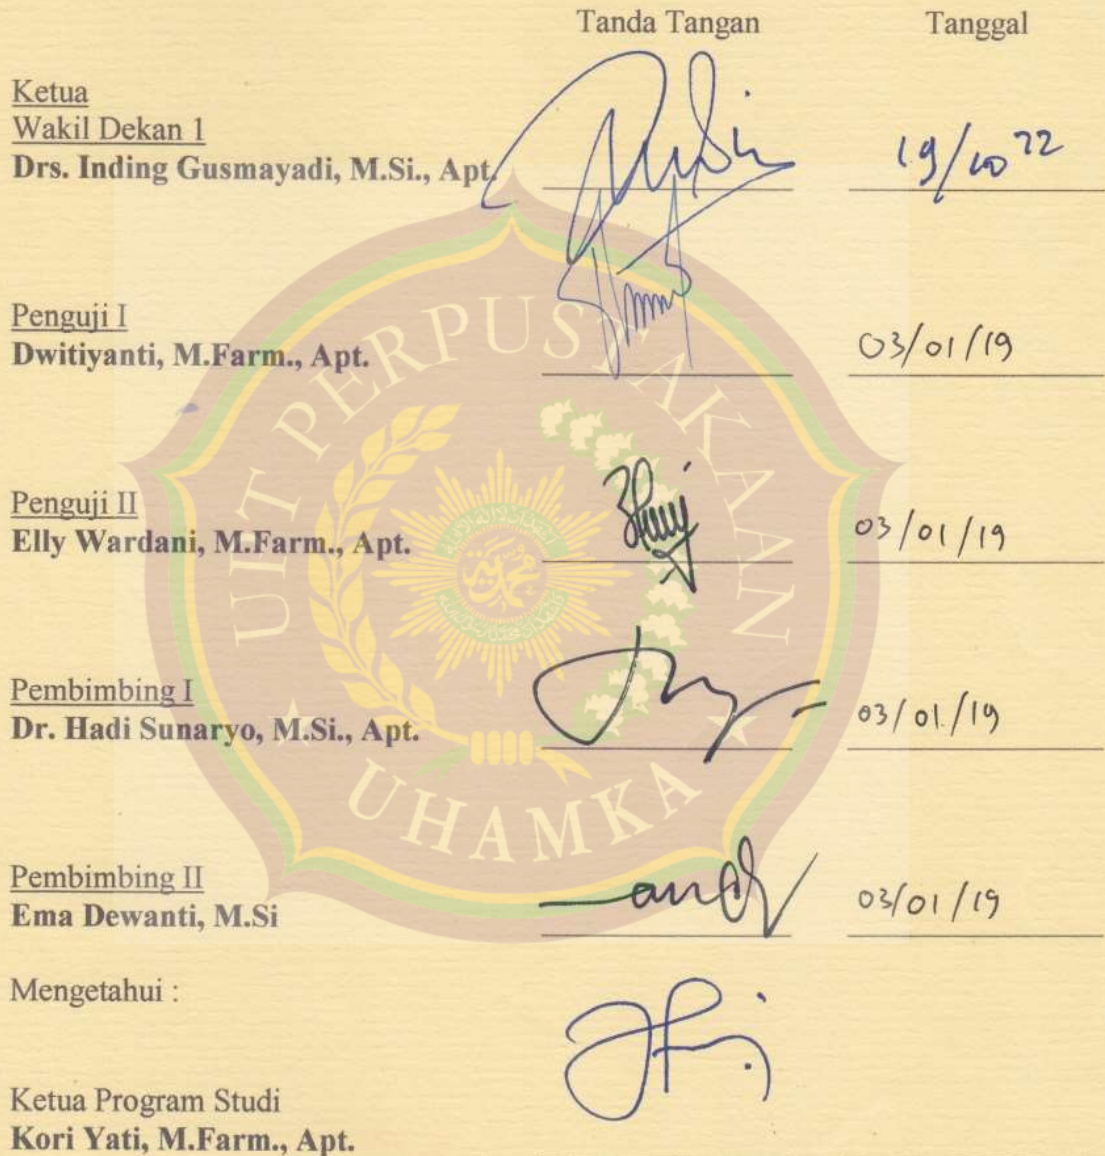 Tanda Tangan Tanggal
Ketua
Wakil Dekan 1
Drs. Inding Gusmayadi, M.Si., Apt. 19/10 22
Penguji I
Dwitiyanti, M.Farm., Apt. 03/01/19
Penguji II
Elly Wardani, M.Farm., Apt. 03/01/19
Pembimbing I
Dr. Hadi Sunaryo, M.Si., Apt. 03/01/19
Pembimbing II
Ema Dewanti, M.Si 03/01/19
Mengetahui :
Ketua Program Studi
Kori Yati, M.Farm., Apt.
UIT PERPUSTAKAAN
UHAMKA